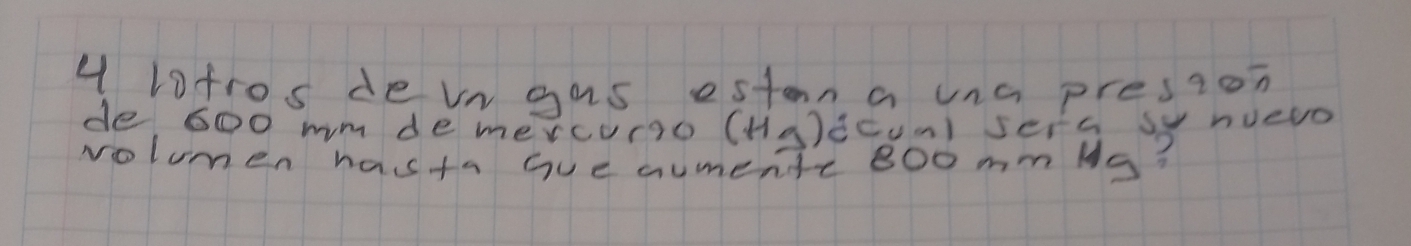 4 litros de un gas estan a una presión
de 600 mm de mercurio (Hg) ¿cual sera su nuevo
volumen hasta que aumente 800 mm Hg?